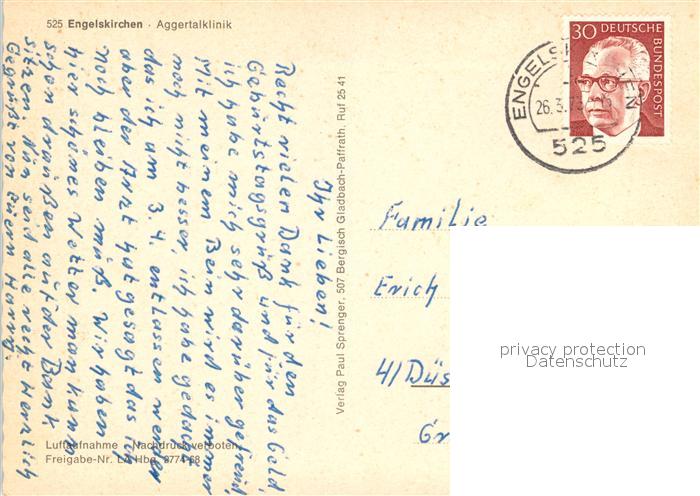 525 Engelskirchen · Aggertalklinik
Ihr Lieben!
Recht vielen Dank für den
Geburtstagsgruß und für das Geld,
ich habe mich sehr darüber gefreut,
Mit meinem Bein wird es immer
noch nicht besser, ich habe gedacht
das ich am 3.4. entlassen werde
aber der Arzt hat gesagt das ich
noch bleiben muß. Wir haben
hier schönes Wetter man kann
schon draußen auf der Bank
sitzen. Nun seid alle recht herzlich
Gegrüßt von Eurem
Luftaufnahme · Nachdruck verboten
Freigabe-Nr. LA Hbg. 3774-68
Verlag Paul Sprenger, 507 Bergisch Gladbach-Paffrath, Ruf 25 41
30 DEUTSCHE
BUNDESPOST
26.3.73
525
Familie
Erich
41 Düs
Gr
privacy protection
Datenschutz